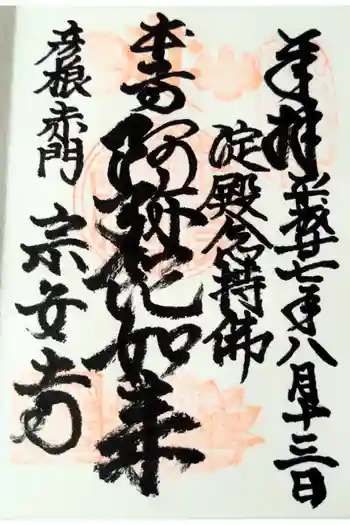 奉拝 平成廿七年八月十三日
淀殿念持佛
本尊 阿弥陀如来
彦根赤門 宗安寺